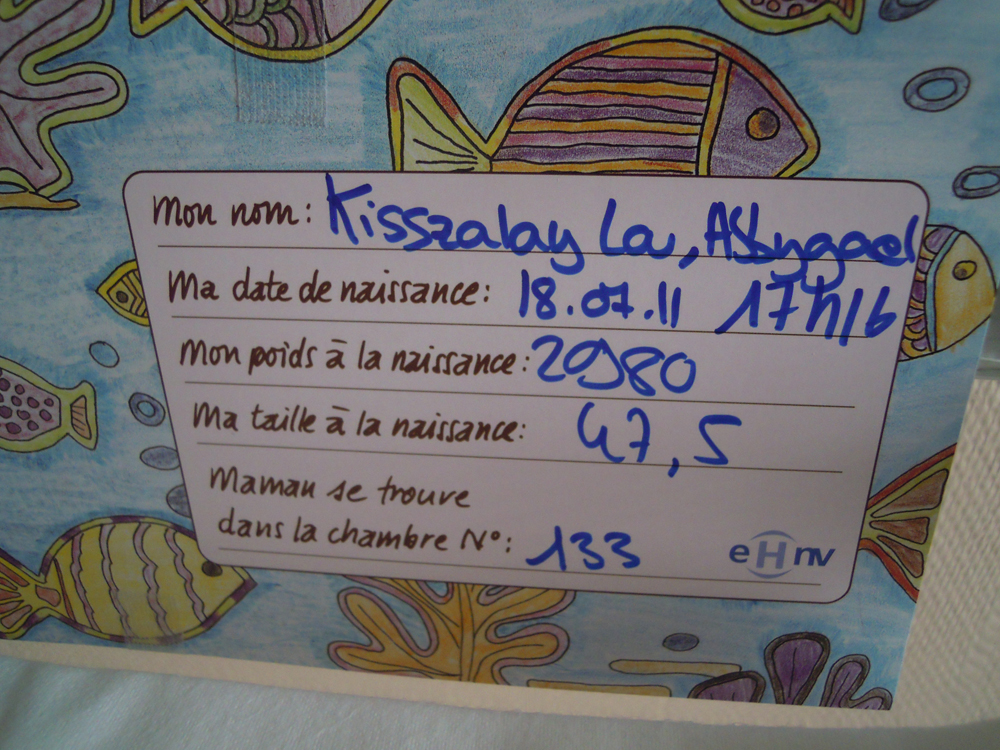 Mon nom: Kisszalay Lou, Abygael
Ma date de naissance: 18.07.11 17h16
Mon poids à la naissance: 2980
Ma taille à la naissance: 47,5
Maman se trouve
dans la chambre N°: 133
eHnv